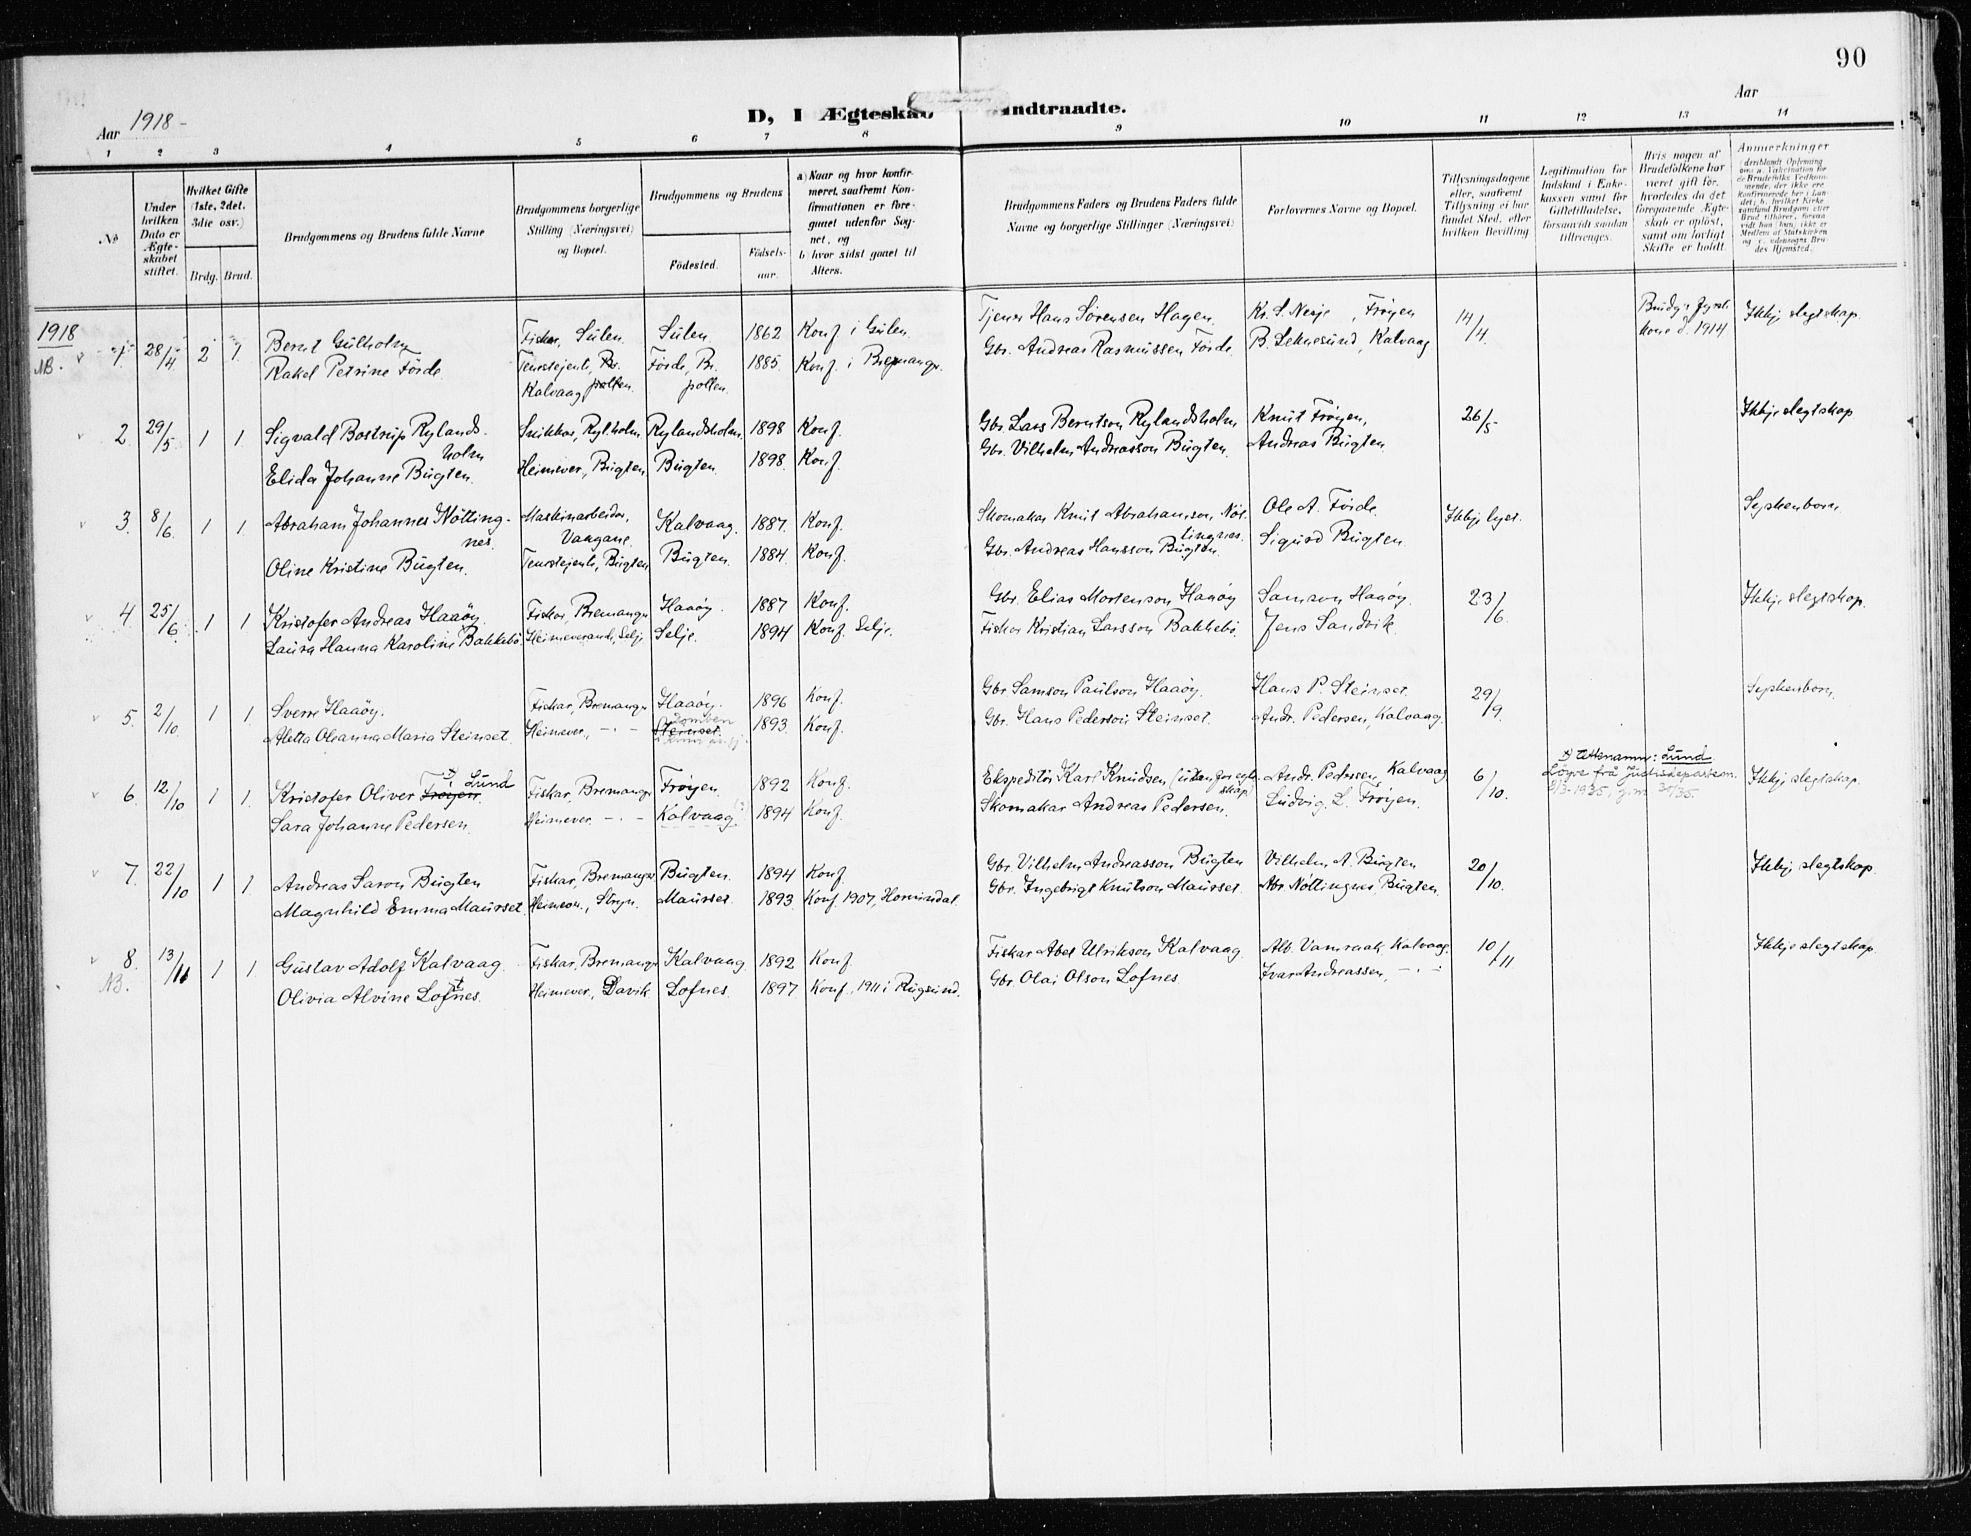 90
Aar 1918 -
D, I Ægteskab Indtraadte.
Aar
1 2 3 4 5 6 7 8 9 10 11 12 13 14
No
Under hvilken Dato er Ægteskabet stiftet.
Hvilket Gifte (1ste, 2det, 3die osv.)
Brdg. Brud.
Brudgommens og Brudens fulde Navne
Brudgommens borgerlige Stilling (Næringsvei) og Bopæl.
Brudgommens og Brudens
Födested. Födselsaar.
a) Naar og hvor konfirmeret, saafremt Konfirmationen er foregaaet udenför Sognet, og
b) hvor sidst gaaet til Alters.
Brudgommens Faders og Brudens Faders fulde Navne og borgerlige Stillinger (Næringsvei)
Forlovernes Navne og Bopæl.
Tillysningsdagene eller, saafremt Tillysning ei har fundet Sted, efter hvilken Bevilling
Legitimation for Indskud i Enkekassen samt for Giftetilladelse, forsaavidt saadan tiltrænges.
Hvis nogen af Brudefolkene har været gift för, hvorledes da det foregaaende Ægteskab er oplöst, samt om lovligt Skifte er holdt.
Anmerkninger
1918
NB. 1. 28/4 2 1. Bernt Gulholm Fiskar, Sulen Sulen 1862 Konf. i Gulen Tjener Hans Sörensen Hagen. Kr. S. Nesje, Fröyen 14/4. Brudg. fyrste kone d. 1914 Ikkje slegtskap.
Rakel Petrine Förde Tenestejente, Kalvaag Förde, Br. pollen. 1885. Konf. i Bremanger. Gbr. Andreas Rasmussen Förde. B. Leknesund, Kalvaag
2. 29/5 1 1 Sigvald Bostrup Rylandsholm Snikkar, Rylholm, Rylandsholm. 1898 Konf. Gbr. Lars Berntson Rylandsholm Knut Fröyen, 26/5 Ikkje slegtskap
Elida Johanne Bugten Heimever., Bugten Bugten. 1898. Konf. Gbr. Vilhelm Andreasson Bugten. Andreas Bugten.
3. 8/6. 1 1. Abraham Johannes Nöttingnes. Maskinarbeidar, Vaagane. Kalvaag. 1887. Konf. Skomakar Knut Abrahamson Nöttingnes. Ole A. Förde. Ikkje lyst. Syskenborn
Oline Kristine Bugten. Tenestejente, Bugten Bugten. 1884. Konf. Gbr. Andreas Hansson Bugten. Sigurd Bugten.
4 25/6. 1 1 Kristofer Andreas Haaöy. Fiskar, Bremanger Haaöy. 1887 Konf. Gbr. Elias Mortenson Haaöy Samson Haaöy. 23/6. Ikkje slegtskap.
Laura Hanna Karoline Bakkebö. Heimeverand., Selje Selje. 1894 Konf. Selje. Fiskar Kristian Larsson Bakkebö. Jens Sandvik.
5. 2/10. 1 1. Sverre Haaöy. Fiskar, Bremanger Haaöy. 1896 Konf. Gbr. Samson Paulson Haaöy. Hans P. Steinset. 29/9. Syskenborn.
Aletta Oleanna Maria Steinset. Heimever., - " - Steinset. 1893 Konf. Gbr. Hans Pederson Steinset. Andr. Pedersen, Kalvaag.
6. 12/10 1 1. Kristofer Oliver Fröyen x) Lund Fiskar, Bremanger Fröyen. 1892 Konf. Ekspeditör Karl Knudsen (utanfor egteskap) Andr. Pedersen, Kalvaag 6/10. x) Ættenamn: Lund Löyve frå Justisdepartem. 8/3-1935, j.nr. 34/35. Ikkje slegtskap.
Sara Johanne Pedersen. Heimever. - " - Kalvaag. 1894 Konf. Skomakar Andreas Pedersen. Ludvig L. Fröyen.
7. 22/10 1 1. Andreas Saron Bugten Fiskar, Bremanger Bugten. 1894 Konf. Gbr. Vilhelm Andreasson Bugten Vilhelm A. Bugten 20/10. Ikkje slegtskap.
Magnhild Emma Maurset. Heimever., Stryn. Maurset. 1893. Konf. 1907, Hornindal. Gbr. Ingebrigt Knutson Maurset. Abr. Nöttingnes Bugten.
NB. 8. 13/11 1 1. Gustav Adolf Kalvaag. Fiskar, Bremanger Kalvaag 1892 Konf. Fiskar Abel Ulrikson Kalvaag. Alb. Vamraak, Kalvaag. 10/11 Ikkje slegtskap.
Olivia Alvine Lofnes. Heimever., Davik. Lofnes. 1897 Konf. 1911 i Rugsund. Gbr. Olai Olson Lofnes. Ivar Andreassen, - " -